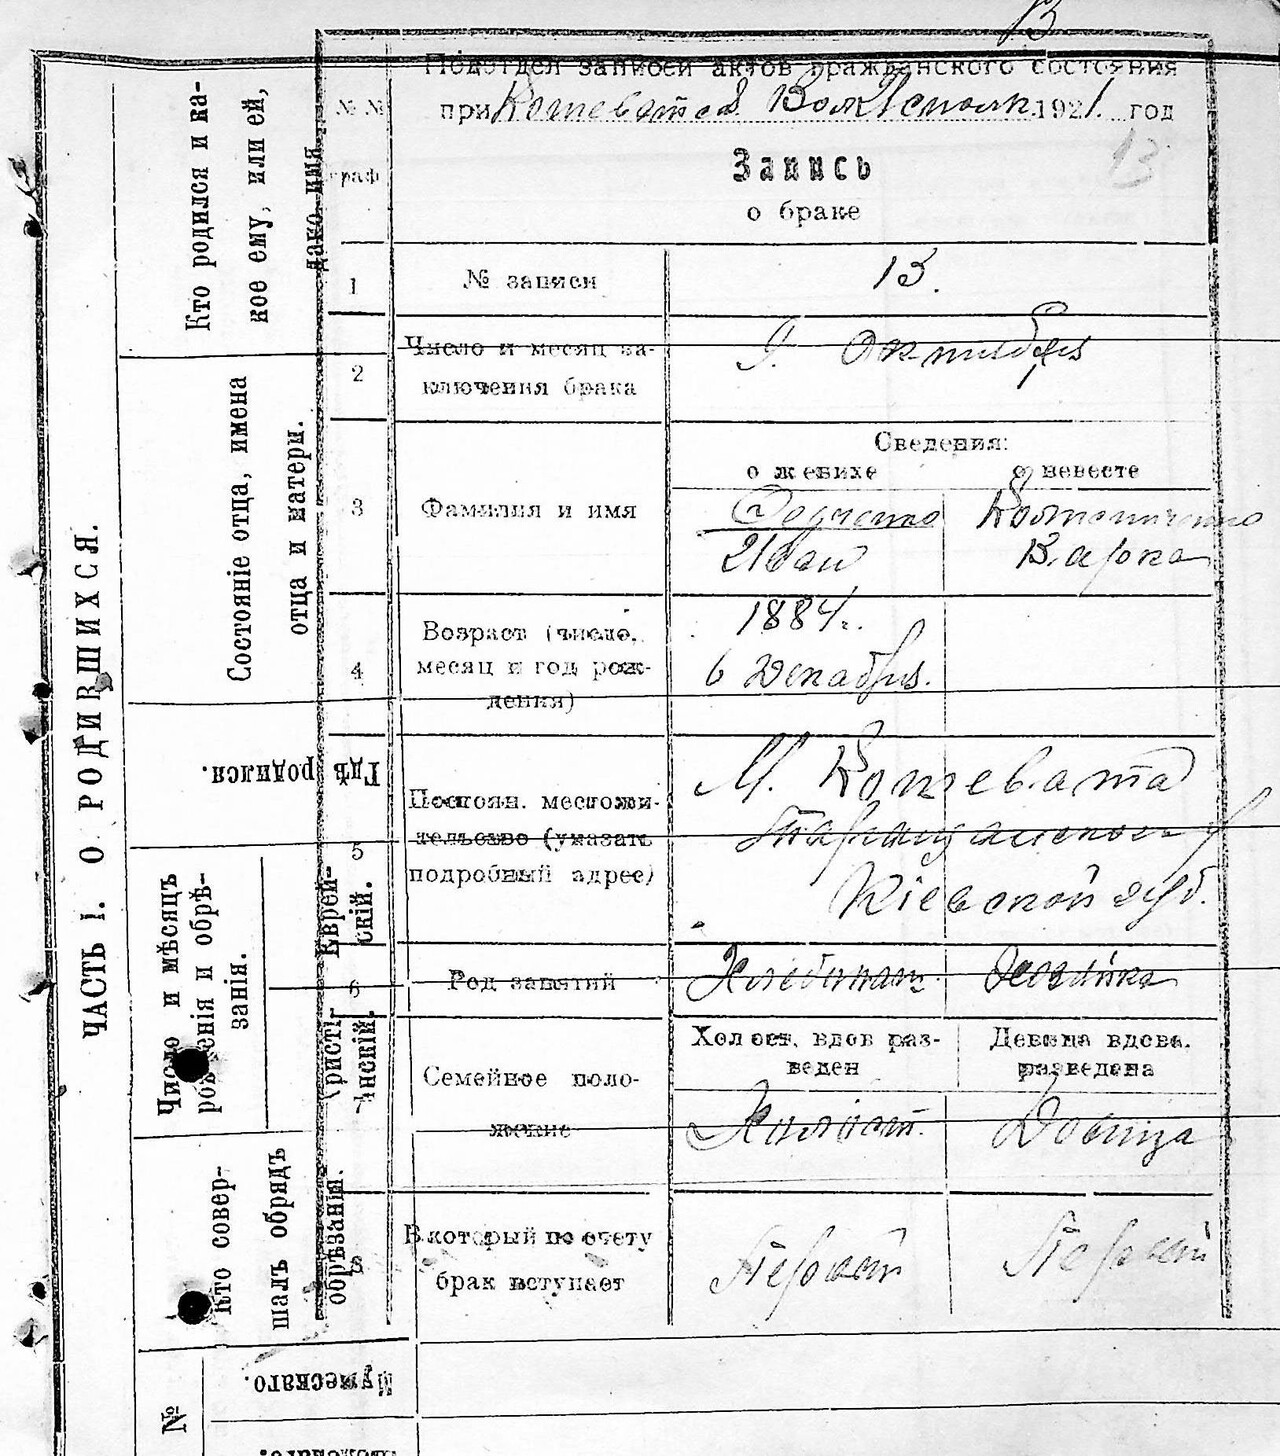 13
Подотдел записей актов гражданского состояния
при Кошеватск Вол Исполк. 1921. год
13
Запись
о браке
№ №
граф
1
№ записи
13.
2
Число и месяц за-
ключения брака
9. Октября
Сведения:
о женихе
о невесте
3
Фамилия и имя
Иван
Варка
4
Возраст (число,
месяц и год рож-
дения)
1884г.
6 Декабря.
5
Постоян. местожи-
тельство (указать
подробный адрес)
М. Кошевата
Таращанского у
Кіевской губ.
6
Род занятий
Хлебопаш.
Хозяйка
7
Семейное поло-
жение
Холост, вдов раз-
веден
Девица вдова.
разведена
Холост.
Девица
8
В который по счету
брак вступает
Первый
Первый
ЧАСТЬ I. О РОДИВШИХСЯ.
Кто родился и ка-
кое ему, или ей,
дано имя
Состояніе отца, имена
отца и матери.
Гдѣ родился.
Число и мѣсяцъ
рожденія и обрѣ-
занія.
Христі-
анскій.
Еврей-
скій.
Кто совер-
шалъ обрядъ
обрѣзанія.
№
Мужескаго.